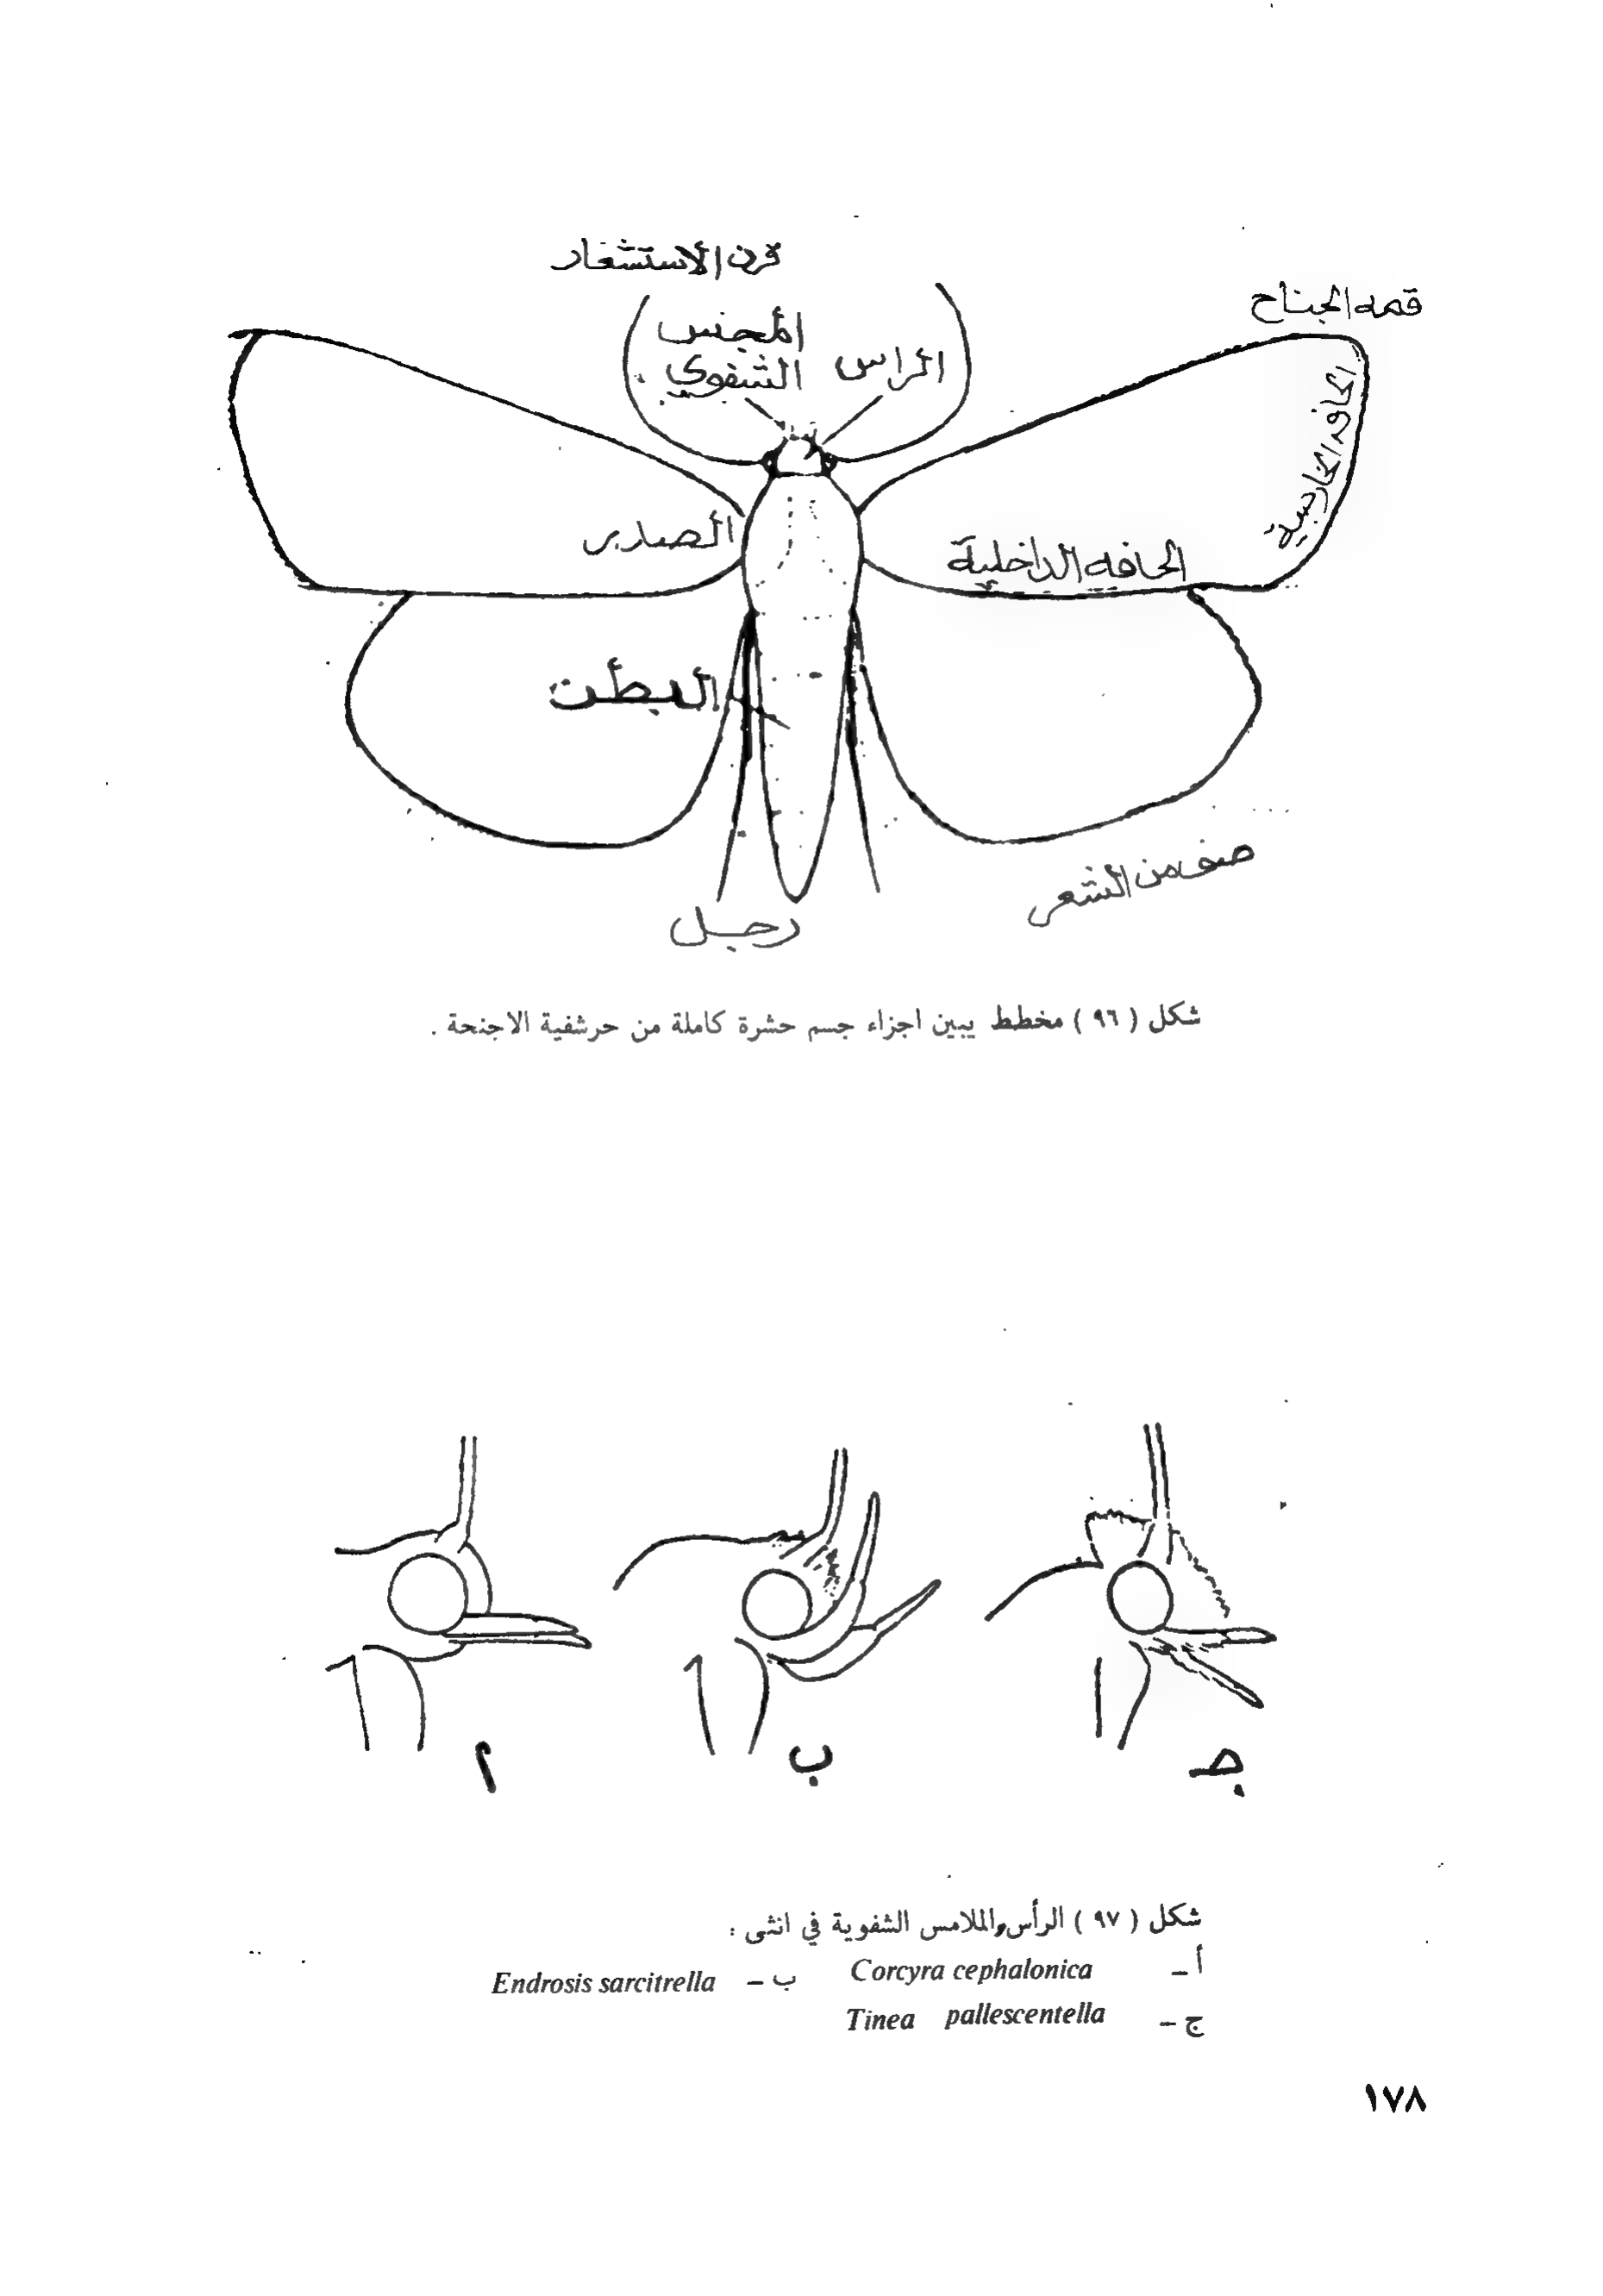 قرن الأستشعار
قمه الجناح
المجنس
الشفوي
الراس
الحافه الخارجية
الصدر
الحافيه الداخلية
البطن
صف من الشعر
رجل
شكل ( ٩٦ ) مخطط يبين اجزاء جسم حشرة كاملة من حرشفية الاجنحة .
أ ب جـ
شكل ( ٩٧ ) الرأس والملامس الشفوية في انثى :
أ – Corcyra cephalonica ب – Endrosis sarcitrella
ج – Tinea pallescentella
١٧٨